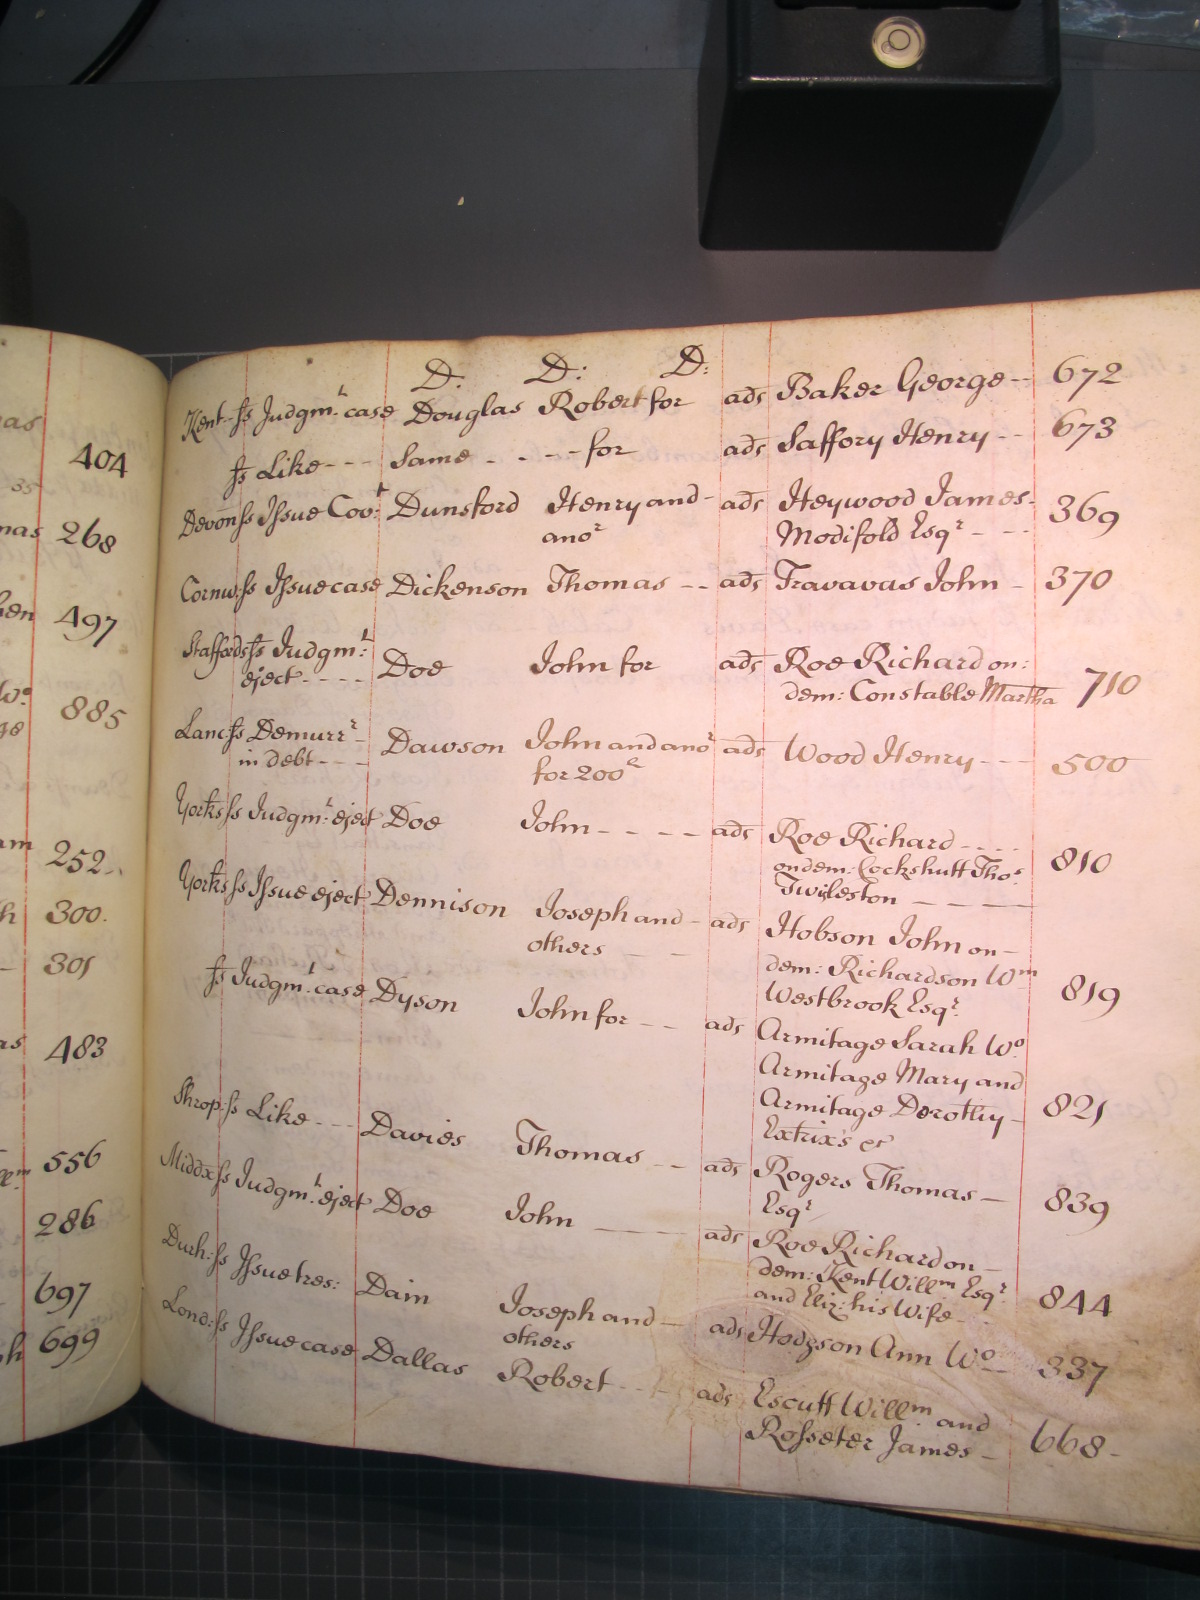 404
268
497
885
252
300.
301
483
556
286
697
699
D. D: D:
Kent ss Judgm.t case Douglas Robert for ads Baker George -- 672
ss Like --- Same - - -- for ads Saffory Henry -- 673
Devon ss Issue Cov.t Dunsford Henry and - ads Heywood James - 369
ano.r Modifold Esq.r - --
Cornw: ss Issue case Dickenson Thomas -- ads Travavas John - 370
Staffords ss Judgm.t Doe John for ads Roe Richard on: 710
eject ---- dem: Constable Martha
Lanc: ss Demurr.r - Dawson John and ano.r ads Wood Henry --- 500
in debt --- for 200
Yorks ss Judgm.t eject Doe John ---- ads Roe Richard ---- 810
on dem: Cockshutt Tho.s
Twisleston ----
Yorks ss Issue eject Dennison Joseph and - ads Hobson John on - 819
others - - dem: Richardson W.m
Westbrook Esq.r
ss Judgm.t case Dyson John for -- ads Armitage Sarah W.o 821
Armitage Mary and
Armitage Dorothy -
Extrix's &c
Shrop: ss Like --- Davies Thomas -- ads Rogers Thomas - 839
Esq.r
Middx ss Judgm.t eject Doe John -- ads Roe Richard on - 844
dem: Kent Will.m Esq.r
and Eliz: his Wife -
Durh: ss Issue tres: Dain Joseph and - ads Hodgson Ann W.o - 337
others
Lond: ss Issue case Dallas Robert -- ads Escutt Will.m and 668-
Rosseter James -